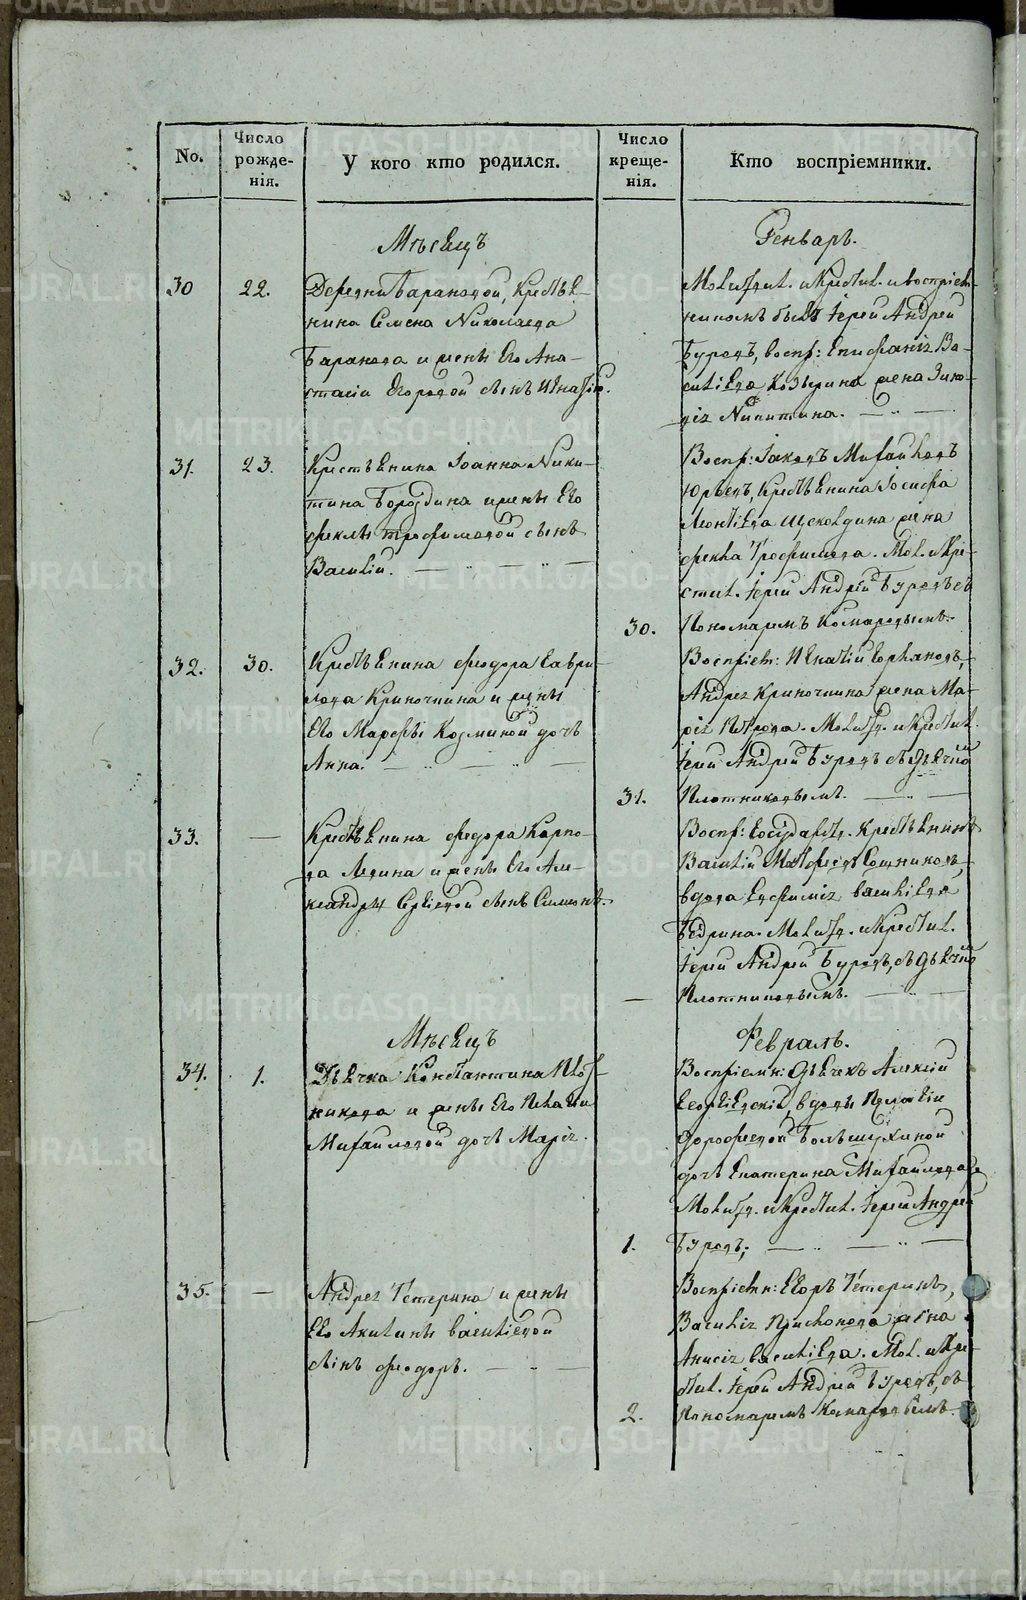 No.
Число рожде-
нія.
У кого кто родился.
Число
креще-
нія.
Кто воспріемники.
Мѣсяцъ
Генварь.
30
22.
Деревни Барановой, Крестья-
нина Семена Николаева
Баранова и жены Его Ана-
стасіи Егоровой сынъ Игнатій.
Молитвил. и Крестил. и воспріем-
никомъ былъ Іерей Андрей
Буровъ, воспр: Епифанія Ва-
сильева Козырина жена Зино-
вія Никитина.
31.
23.
Крестьянина Іоанна Ники-
тина Бородина и жены Его
Феклы Трофимовой сынъ
Василій.
Воспр: Іаковъ Михайловъ
Юрьевъ, Крестьянина Іосифа
Леонтьева Щеколдина жена
Фекла Трофимова. Мол. и Кре-
стил. Іерей Андрей Буровъ съ
30.
Пономаремъ Комаровымъ.
32.
30.
Крестьянина Феодора Гаври-
лова Криночкина и жены
Его Марфы Козминой дочь
Анна.
Воспріем: Игнатій
Андрея Криночкина жена Ма-
рія Петрова. Молитв. и Крестил.
Іерей Андрей Буровъ съ дьячкомъ
31.
Плотниковымъ.
33.
Крестьянина Федора Карпо-
ва Ледина и жены Его Але-
ксандры Сергіевой сынъ Симеонъ.
Воспр: Государств. Крестьянинъ
Василій Матфеевъ Сошниковъ,
вдова Евфимія Васильева
Бедрина. Молитв. и Крестил.
Іерей Андрей Буровъ, съ дьячкомъ
Плотниковымъ.
Мѣсяцъ
Февраль.
34.
1.
Дьячка Константина Плот-
никова и жены Его Пелагіи
Михайловой дочь Марія.
Воспріемн: дьячекъ Алексій
Георгіевскій, вдовы
Дорофеевой Большухиной
дочь Екатерина Михайлова,
Молитв. и Крестил. Іерей Андрей
1.
Буровъ;
35.
Андрея Тетерина и жены
Его Акилины Васильевой
сынъ Феодоръ.
Воспріемн: Егоръ Тетеринъ,
Василія жена
Анисія Васильева. Мол. и Кре-
стил. Іерей Андрей Буровъ, съ
2.
Пономаремъ Комаровымъ.
METRIKI.GASO-URAL.RU